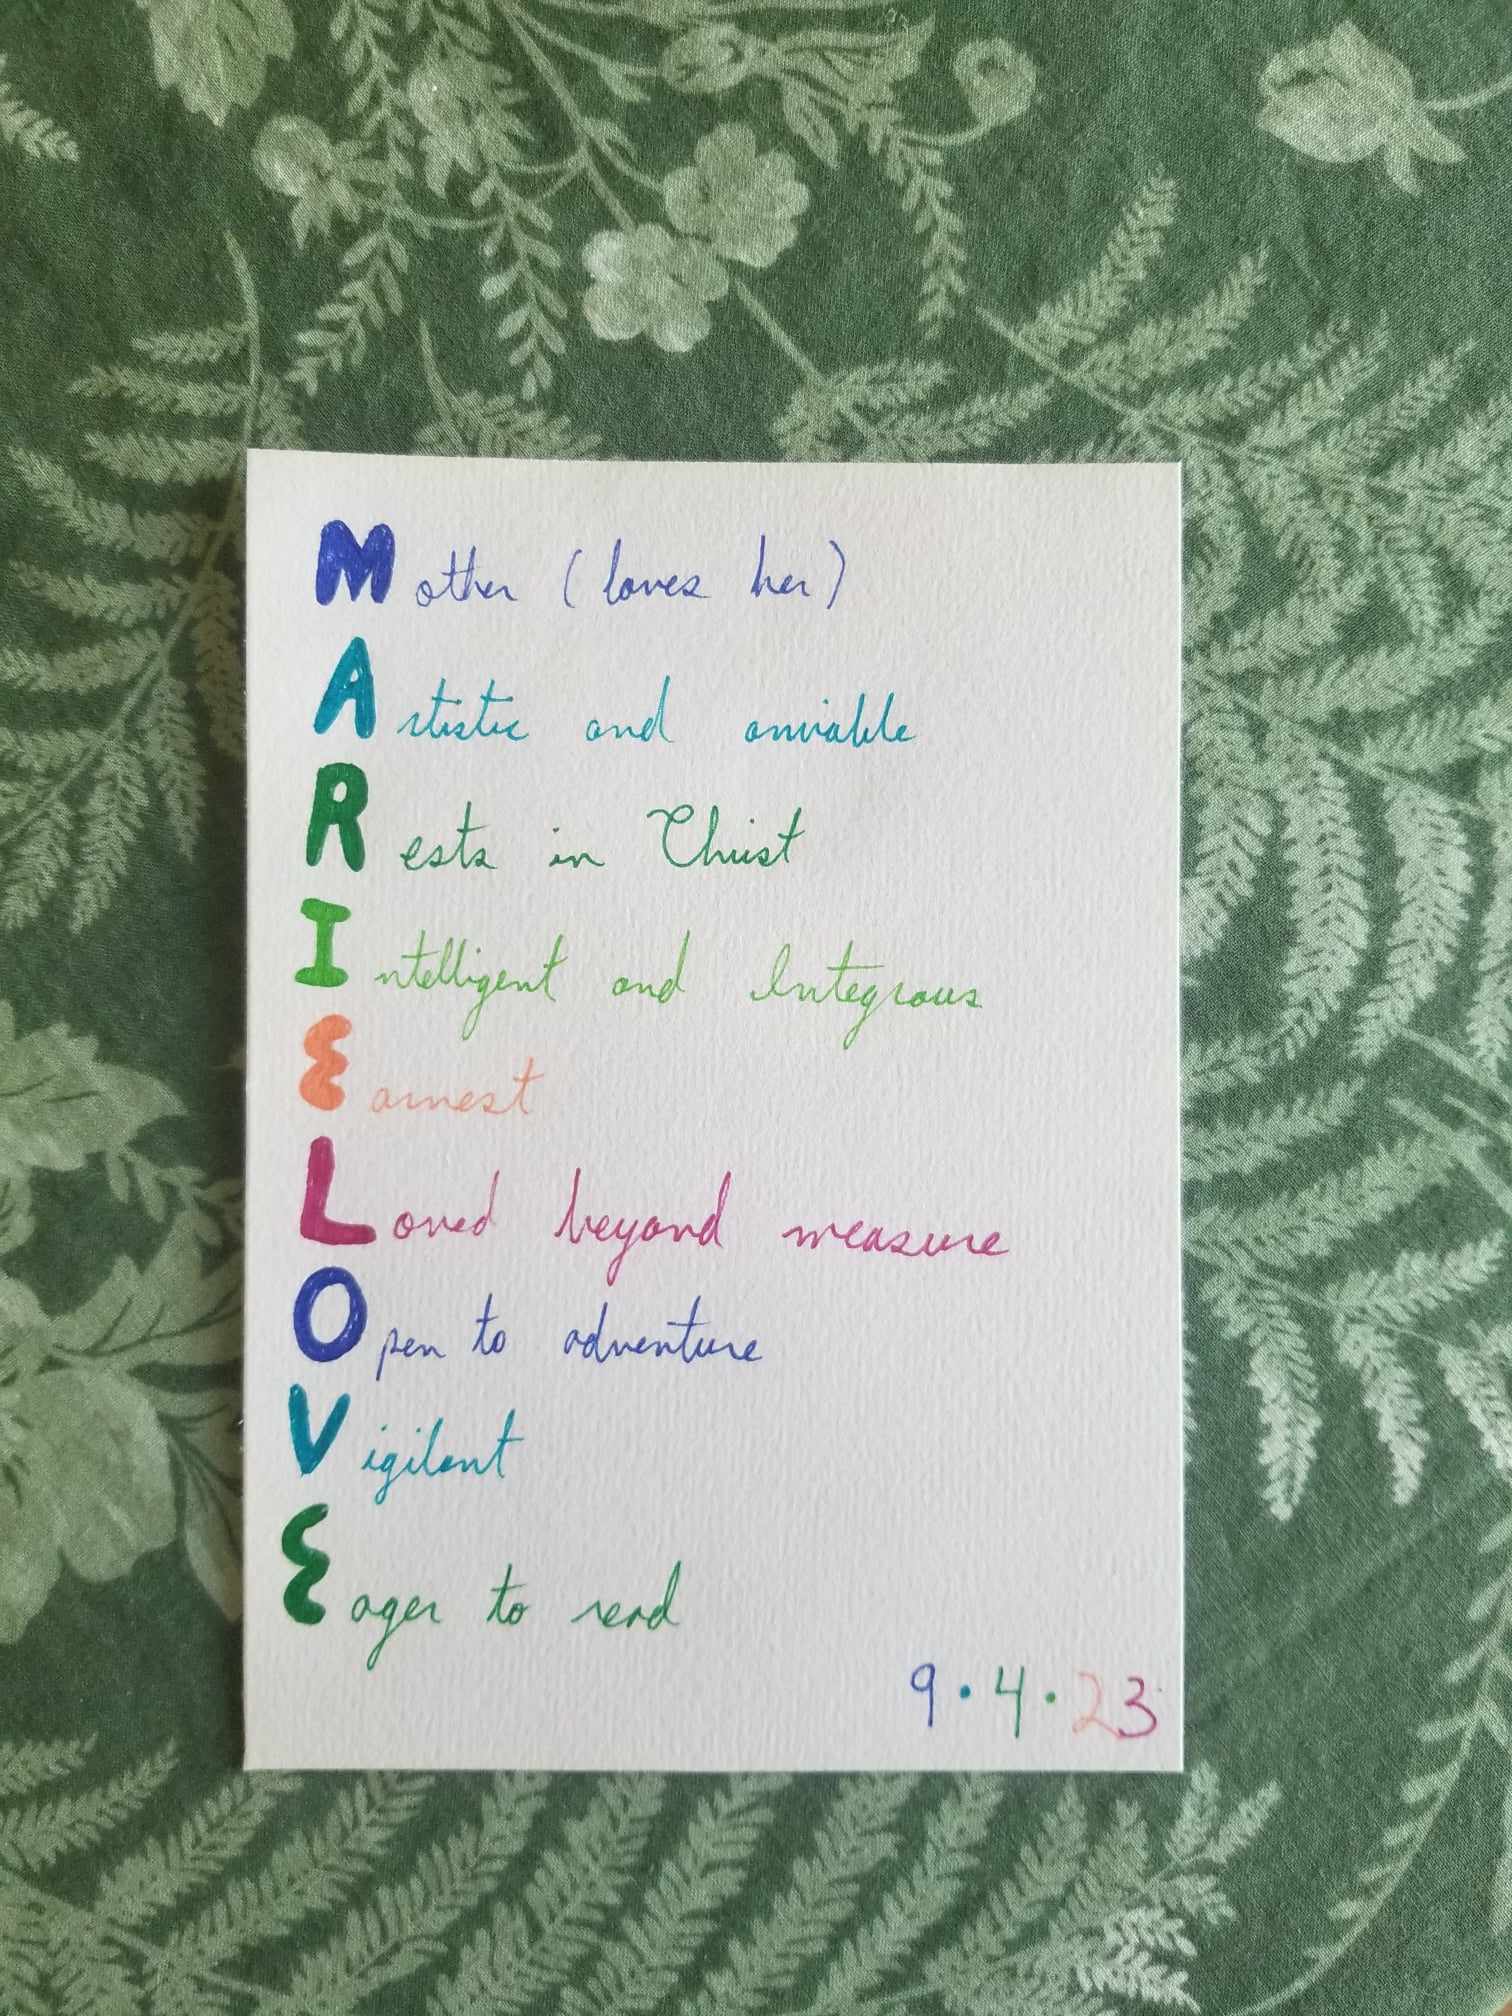 Mother (loves her)
Artistic and amiable
Rests in Christ
Intelligent and Integrous
Earnest
Loved beyond measure
Open to adventure
Vigilant
Eager to read
9.4.23